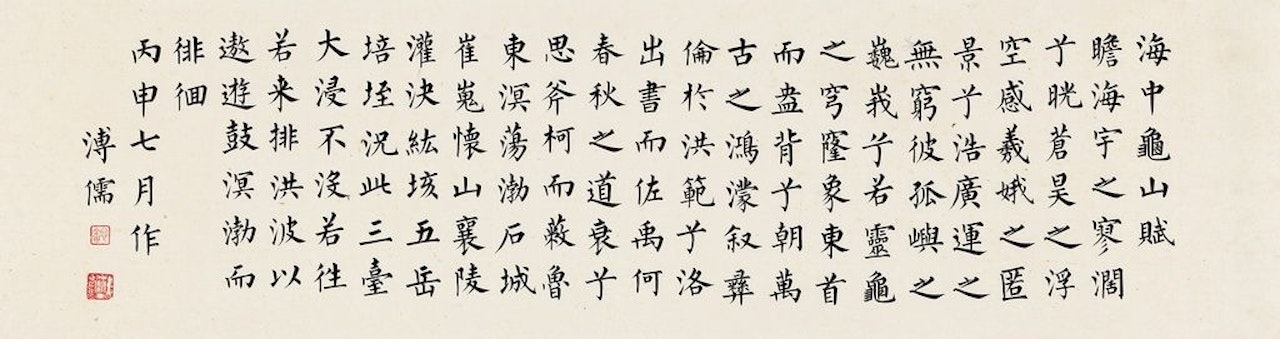 海中龜山賦
瞻海宇之寥濶
兮晄蒼昊之浮
空感羲娥之匿
景兮浩廣運之
無窮彼孤嶼之
巍峩兮若靈龜
之穹窿象東首
而盎背兮朝萬
古之鴻濛叙彝
倫於洪範兮洛
出書而佐禹何
春秋之道衰兮
思斧柯而蔽魯
東溟蕩渤石城
崔嵬懷山襄陵
灌決紘垓五岳
培垤況此三臺
大浸不沒若往
若来排洪波以
遨遊鼓溟渤而
徘徊
丙申七月作
溥儒